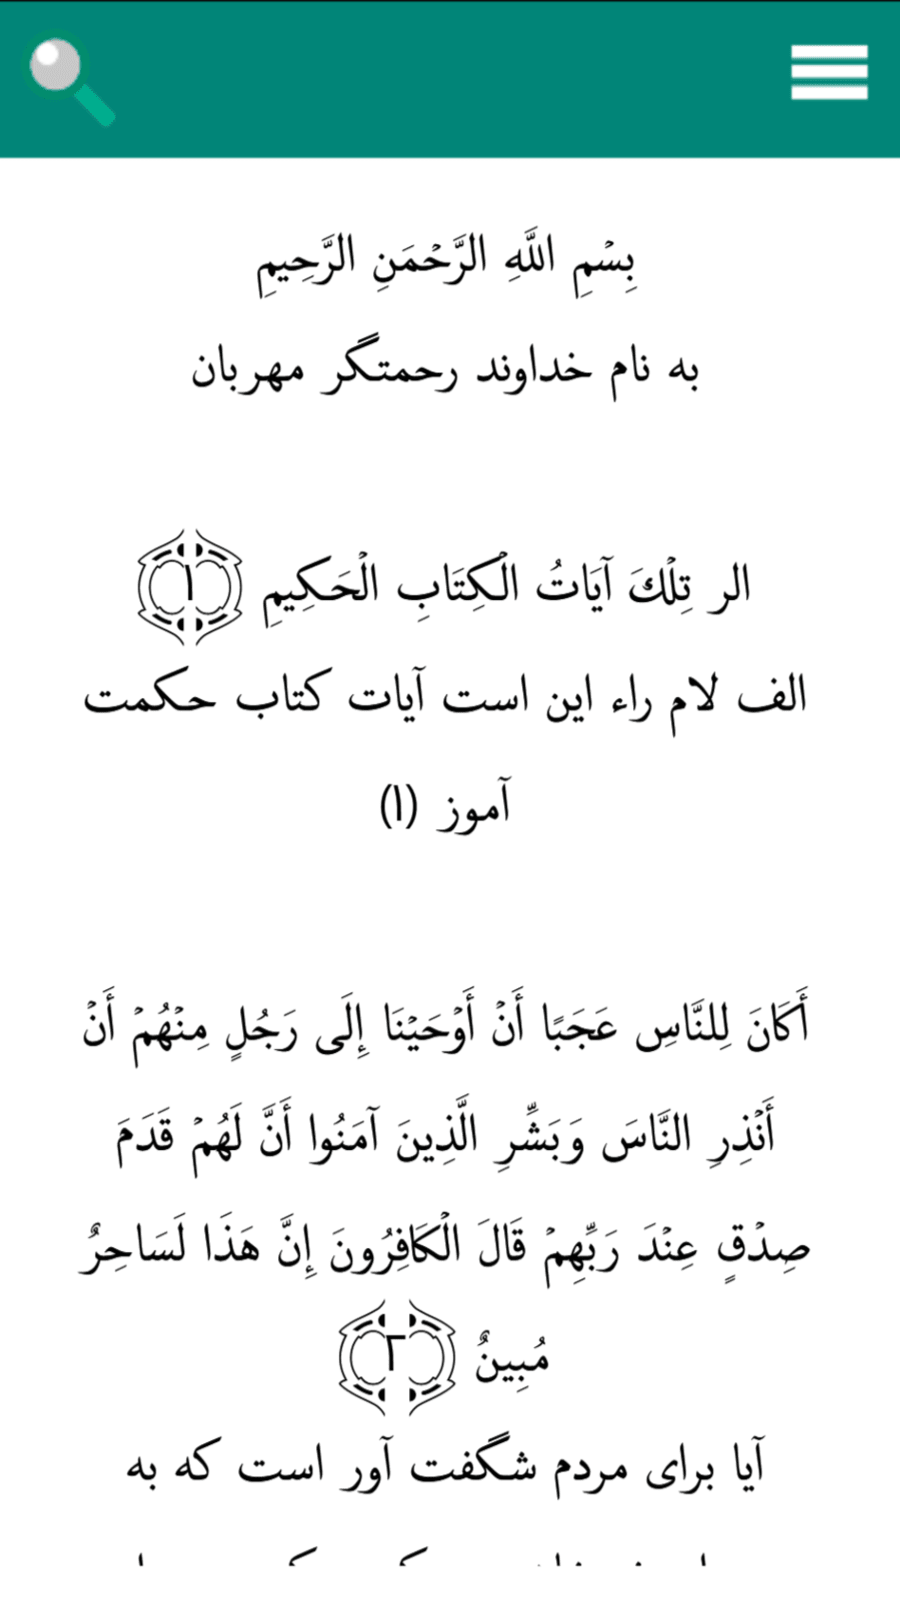 بِسْمِ اللَّهِ الرَّحْمَنِ الرَّحِيمِ
به نام خداوند رحمتگر مهربان
الر تِلْكَ آيَاتُ الْكِتَابِ الْحَكِيمِ ﴿١﴾
الف لام راء این است آیات کتاب حکمت
آموز (۱)
أَكَانَ لِلنَّاسِ عَجَبًا أَنْ أَوْحَيْنَا إِلَى رَجُلٍ مِنْهُمْ أَنْ
أَنْذِرِ النَّاسَ وَبَشِّرِ الَّذِينَ آمَنُوا أَنَّ لَهُمْ قَدَمَ
صِدْقٍ عِنْدَ رَبِّهِمْ قَالَ الْكَافِرُونَ إِنَّ هَذَا لَسَاحِرٌ
مُبِينٌ ﴿٢﴾
آیا برای مردم شگفت آور است که به